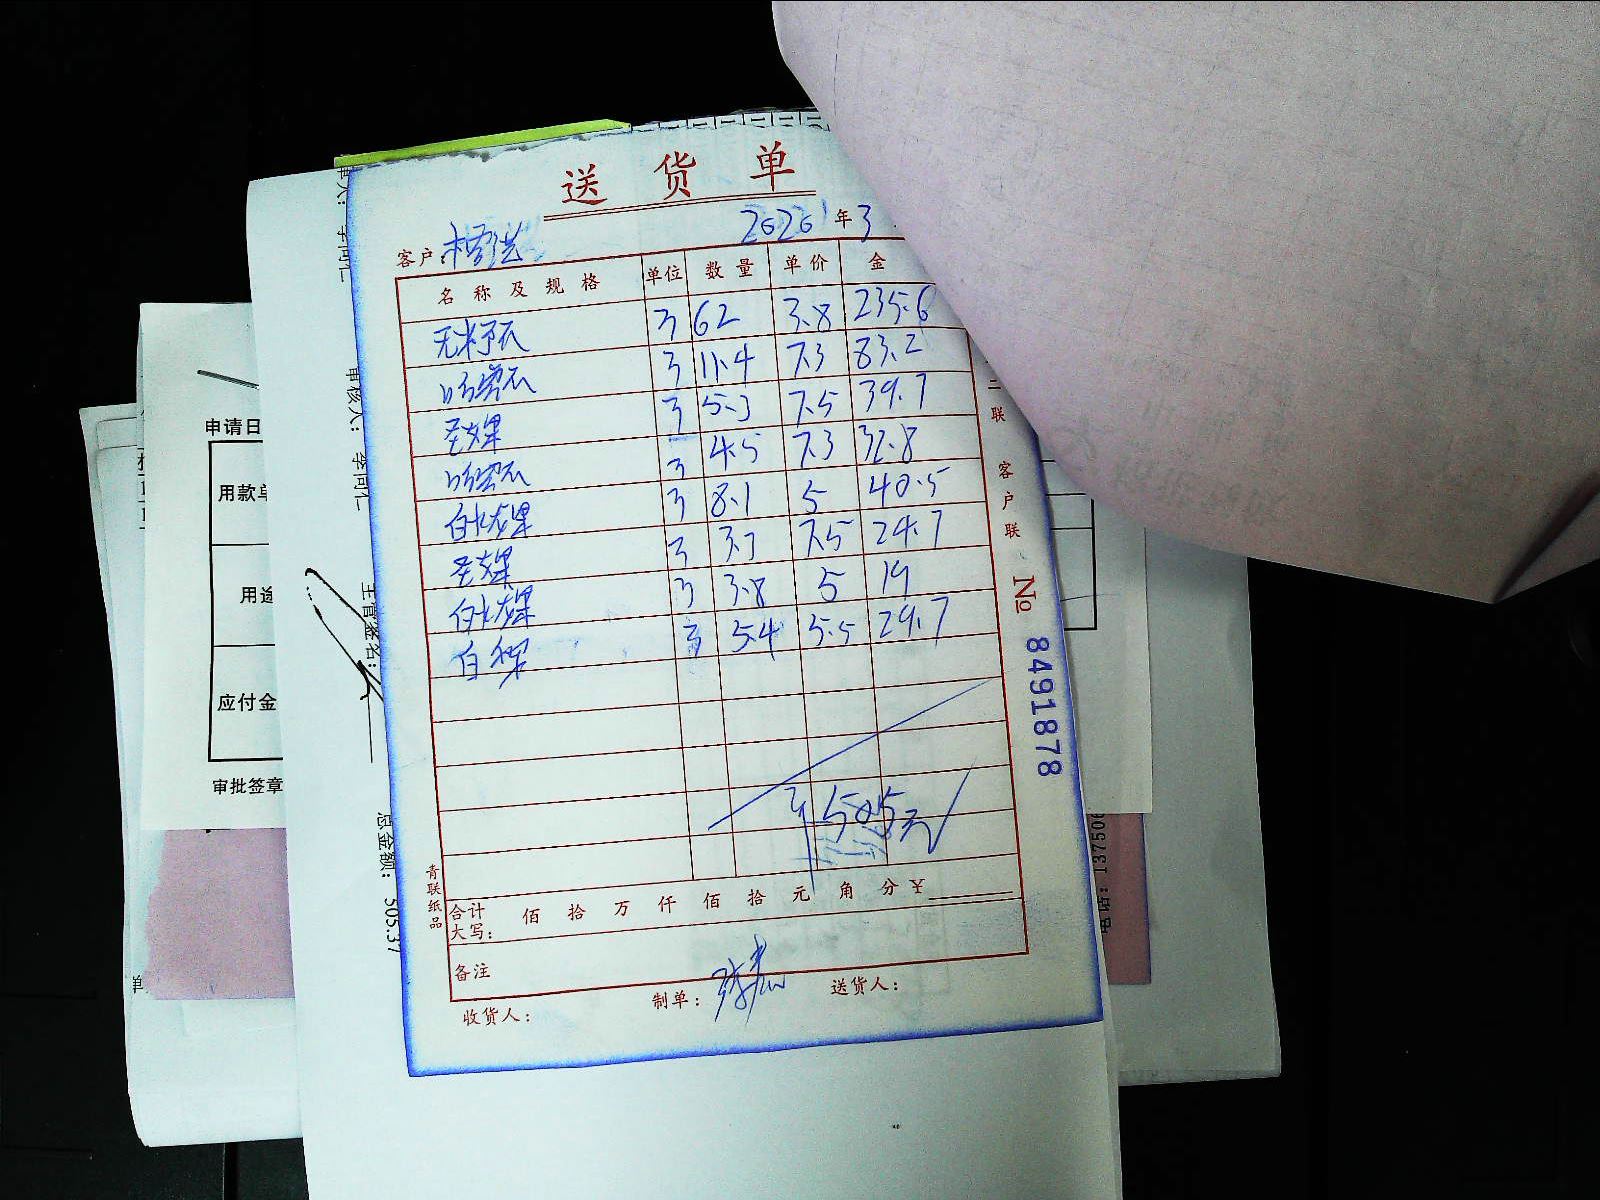 送货单
2020年3
客户
名称及规格 单位 数量 单价 金
无籽瓜 斤 62 3.8 235.6
哈密瓜 斤 11.4 7.3 83.2
圣女果 斤 5.3 7.5 39.7
哈密瓜 斤 4.5 7.3 32.8
白火龙果 斤 8.1 5 40.5
圣女果 斤 3.3 7.5 24.7
白火龙果 斤 3.8 5 19
斤 5.4 5.5 29.7
505元
合计大写: 佰 拾 万 仟 佰 拾 元 角 分 ¥
备注
收货人: 制单: 送货人:
青联纸品
二联 客户联
No 8491878
申请日
用款单
用途
应付金
审批签章
审核人:
主管签名:
总金额: 505.37